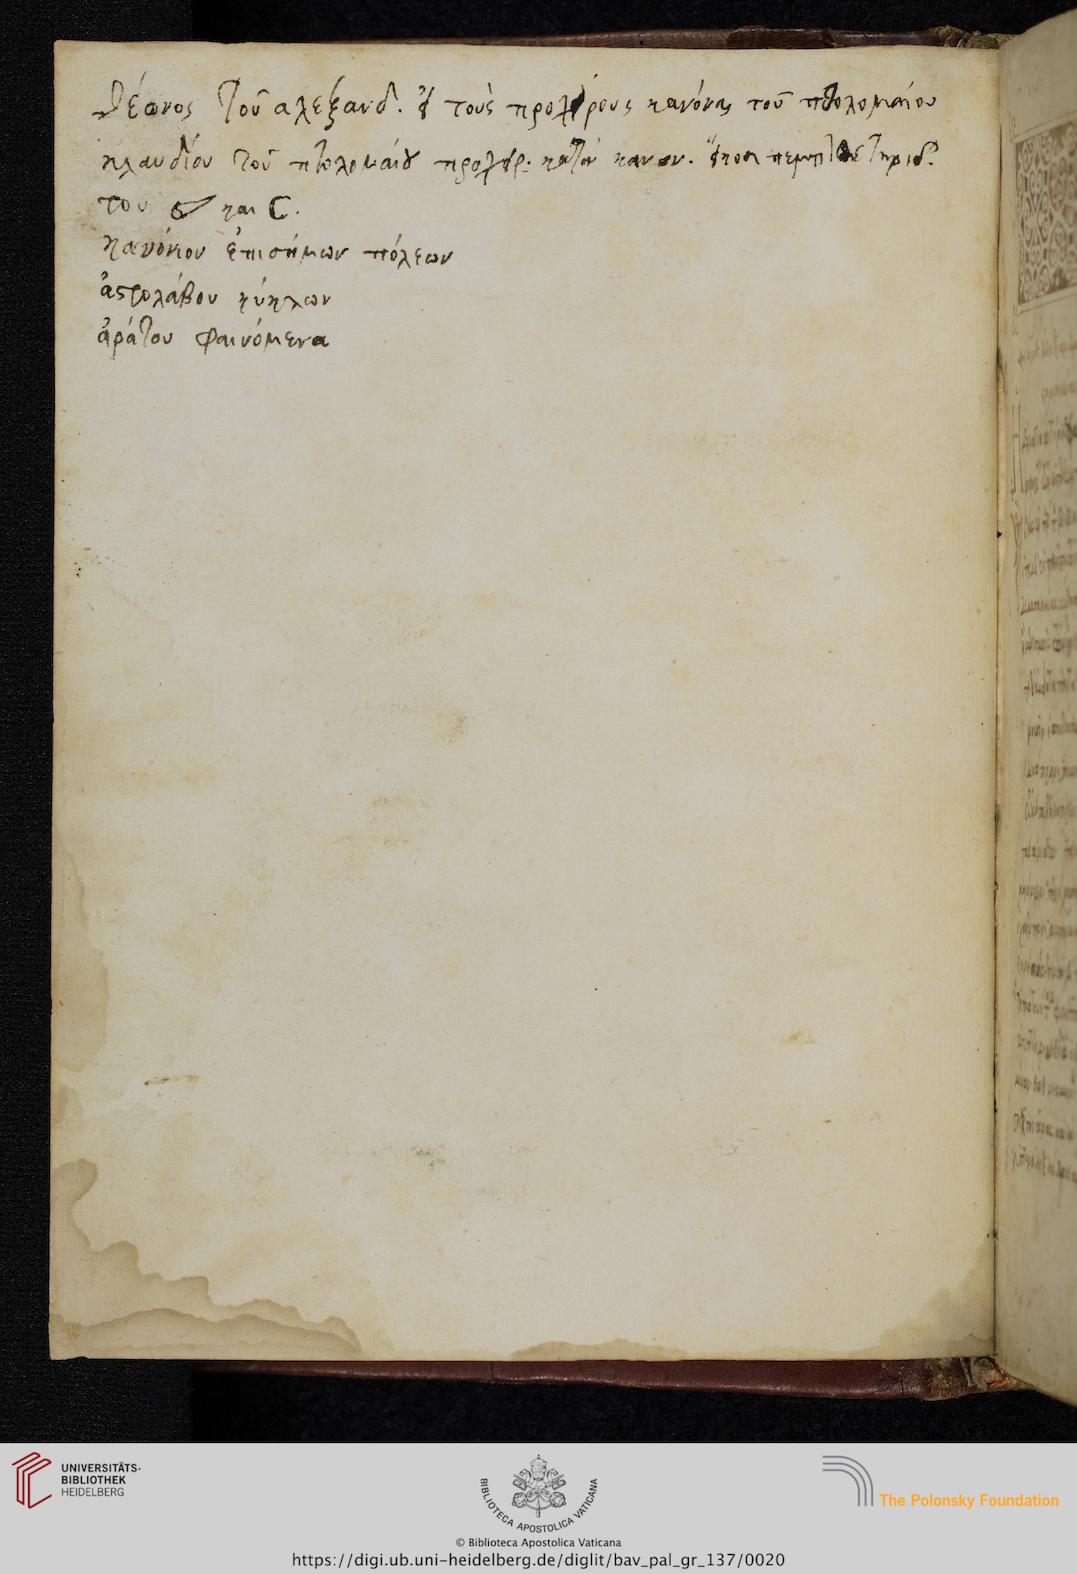 Θέωνος τοῦ αλεξανδ. εἰ τοὺς προχείρους κανόνας τοῦ πτολομαίου
κλαυδίου τοῦ πτολομαίου προχειρ. κανον. εἴκοσι πεμπτ ετηριδ.
του και C.
κανόνιον ἐπισήμων πόλεων
ἀστρολάβου κύκλων
ἀράτου φαινόμενα
UNIVERSITÄTS-
BIBLIOTHEK
HEIDELBERG
BIBLIOTECA APOSTOLICA VATICANA
The Polonsky Foundation
© Biblioteca Apostolica Vaticana
https://digi.ub.uni-heidelberg.de/diglit/bav_pal_gr_137/0020